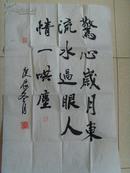 驚心歲月東
流水過眼人
情一哄塵